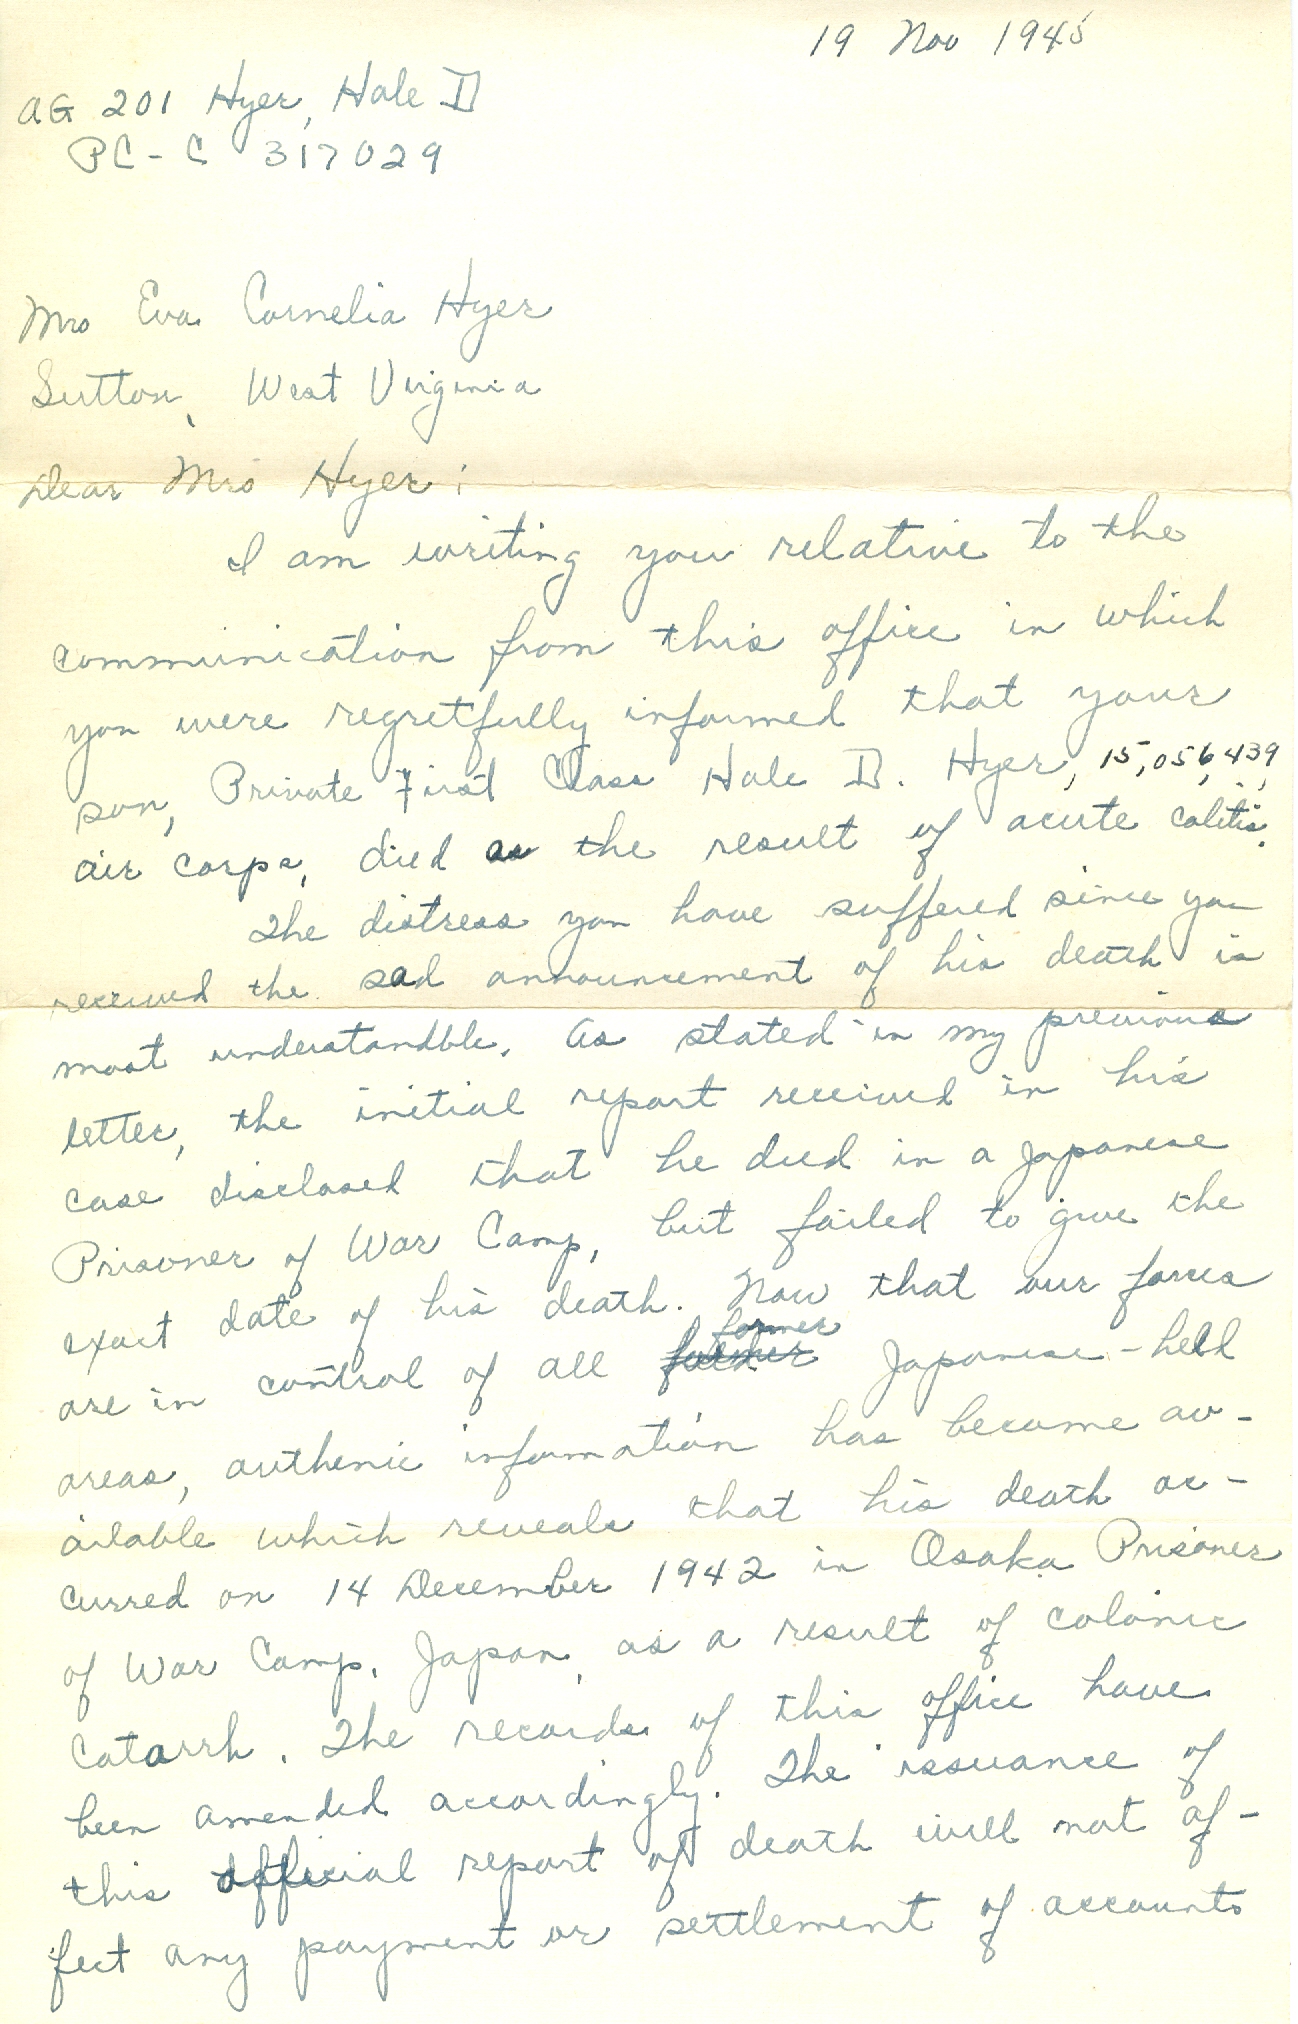 19 Nov 1945
AG 201 Hyer, Hale D
PC-C 317029
Mrs Eva Cornelia Hyer
Sutton, West Virginia
Dear Mrs Hyer:
I am writing you relative to the
communication from this office in which
you were regretfully informed that your
son, Private First Class Hale D. Hyer, 15,056,439,
air corps, died as the result of acute colitis.
The distress you have suffered since you
received the sad announcement of his death is
most understandble. As stated in my previous
letter, the initial report received in his
case disclosed that he died in a Japanese
Prisoner of War Camp, but failed to give the
exact date of his death. Now that our forces
former
are in control of all Japanese-held
areas, authenic information has become av-
ailable which reveals that his death oc-
curred on 14 December 1942 in Osaka Prisoner
of War Camp, Japan, as a result of colonic
Catarrh. The records of this office have
been amended accordingly. The issuance of
this official report of death will not af-
fect any payment or settlement of accounts